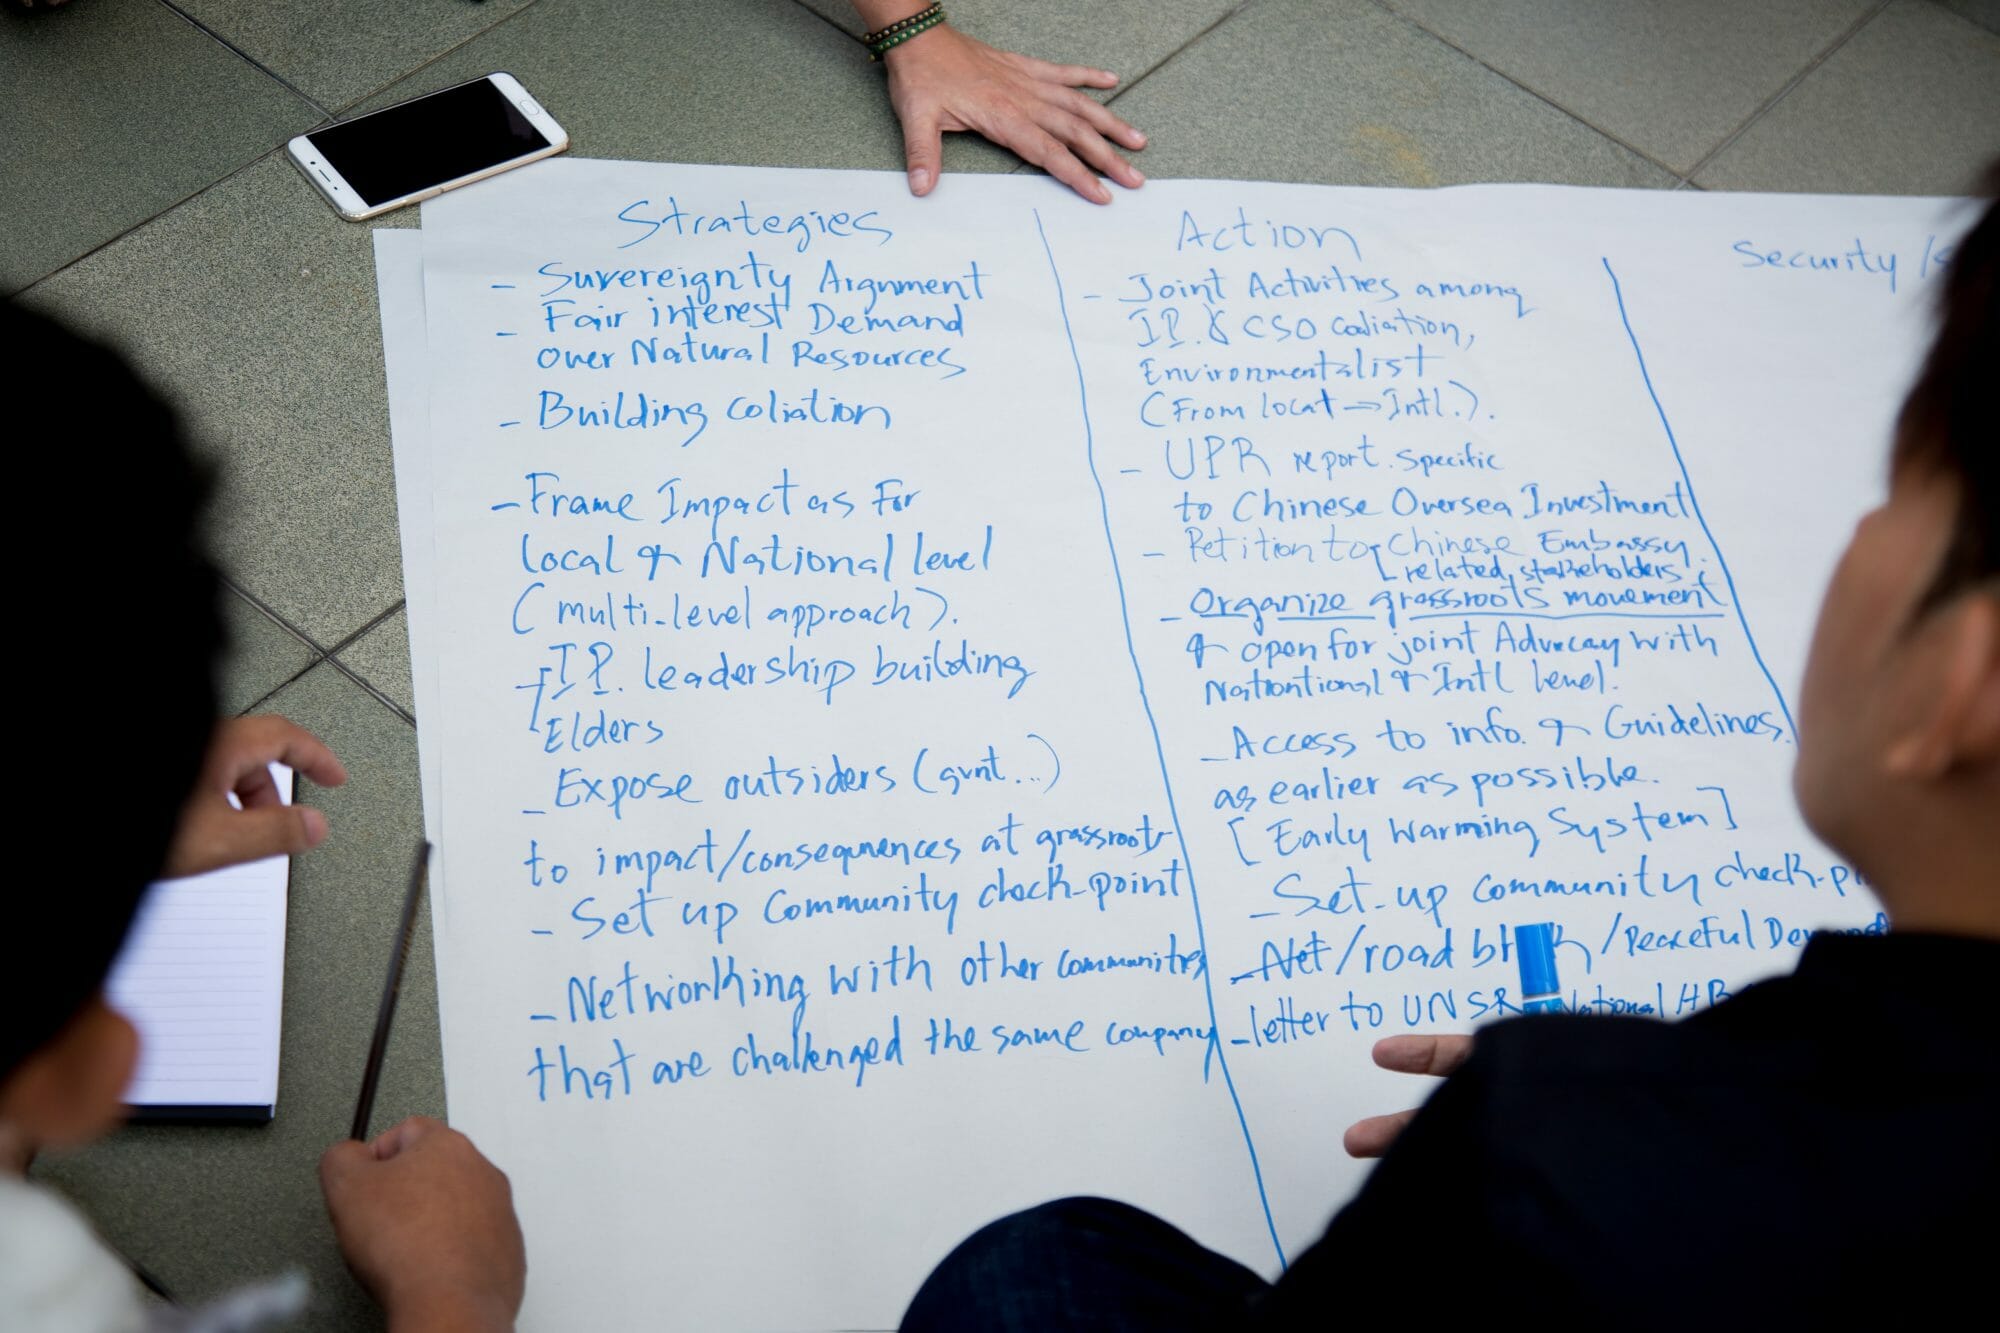 Strategies
- Suvereignty Argnment
- Fair interest Demand
over Natural Resources
- Building coliation
- Frame Impact as For
local & National level
(multi-level approach).
- I.P. leadership building
Elders
- Expose outsiders (gvnt...)
to impact/consequnences at grassroots
- Set up Community check-point
- Networking with other communities
that are challenged the same company
Action
- Joint Activities among
I.P. & CSO coaliation,
Environmentalist
(From local → Intl.).
- UPR report. Specific
to Chinese Oversea Investment
- Petition to Chinese Embassy.
related stakeholders
- Organize grassroots movement
& open for joint Advocay with
Nationtional & Intl level.
- Access to info. & Guidelines.
as earlier as possible.
[Early Warming System]
- Set-up community check-
- Net/road /Peaceful
- letter to UNSR National
Security /